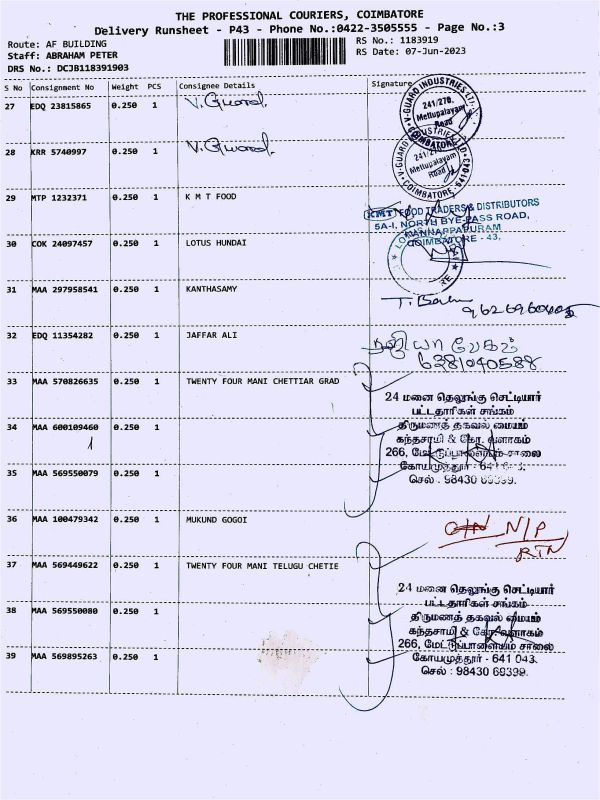 THE PROFESSIONAL COURIERS, COIMBATORE
Delivery Runsheet - P43 - Phone No.:0422-3505555 - Page No.:3
Route: AF BUILDING
RS No.: 1183919
Staff: ABRAHAM PETER
RS Date: 07-Jun-2023
DRS No.: DCJB118391903
S No Consignment No Weight PCS Consignee Details Signature
27 EDQ 23815865 0.250 1 V. Guard.
V-GUARD INDUSTRIES LTD.
241/276,
Mettupalayam
Road
COIMBATORE
28 KRR 5740997 0.250 1 V. Guard.
INDUSTRIES
241/276
Mettupalayam
Road
COIMBATORE-641 043
29 MTP 1232371 0.250 1 K M T FOOD
KMT FOOD TRADERS & DISTRIBUTORS
5A-I, NORTH BYE-PASS ROAD,
KANNAPPAPURAM
COIMBATORE - 43.
30 COK 24097457 0.250 1 LOTUS HUNDAI
31 MAA 297958541 0.250 1 KANTHASAMY
32 EDQ 11354282 0.250 1 JAFFAR ALI
6381040588
33 MAA 570826635 0.250 1 TWENTY FOUR MANI CHETTIAR GRAD
34 MAA 600109460 0.250 1
1
35 MAA 569550079 0.250 1
24 மனை தெலுங்கு செட்டியார்
பட்டதாரிகள் சங்கம்
திருமணத் தகவல் மையம்
கந்தசாமி & கோ. வளாகம்
266, மேட்டுப்பாளையம் சாலை
கோயமுத்தூர் - 641 043.
செல் : 98430 69399.
36 MAA 100479342 0.250 1 MUKUND GOGOI
N/P
RTN
37 MAA 569449622 0.250 1 TWENTY FOUR MANI TELUGU CHETIE
38 MAA 569550080 0.250 1
39 MAA 569895263 0.250 1
24 மனை தெலுங்கு செட்டியார்
பட்டதாரிகள் சங்கம்
திருமணத் தகவல் மையம்
கந்தசாமி & கோ. வளாகம்
266, மேட்டுப்பாளையம் சாலை
கோயமுத்தூர் - 641 043.
செல் : 98430 69399.